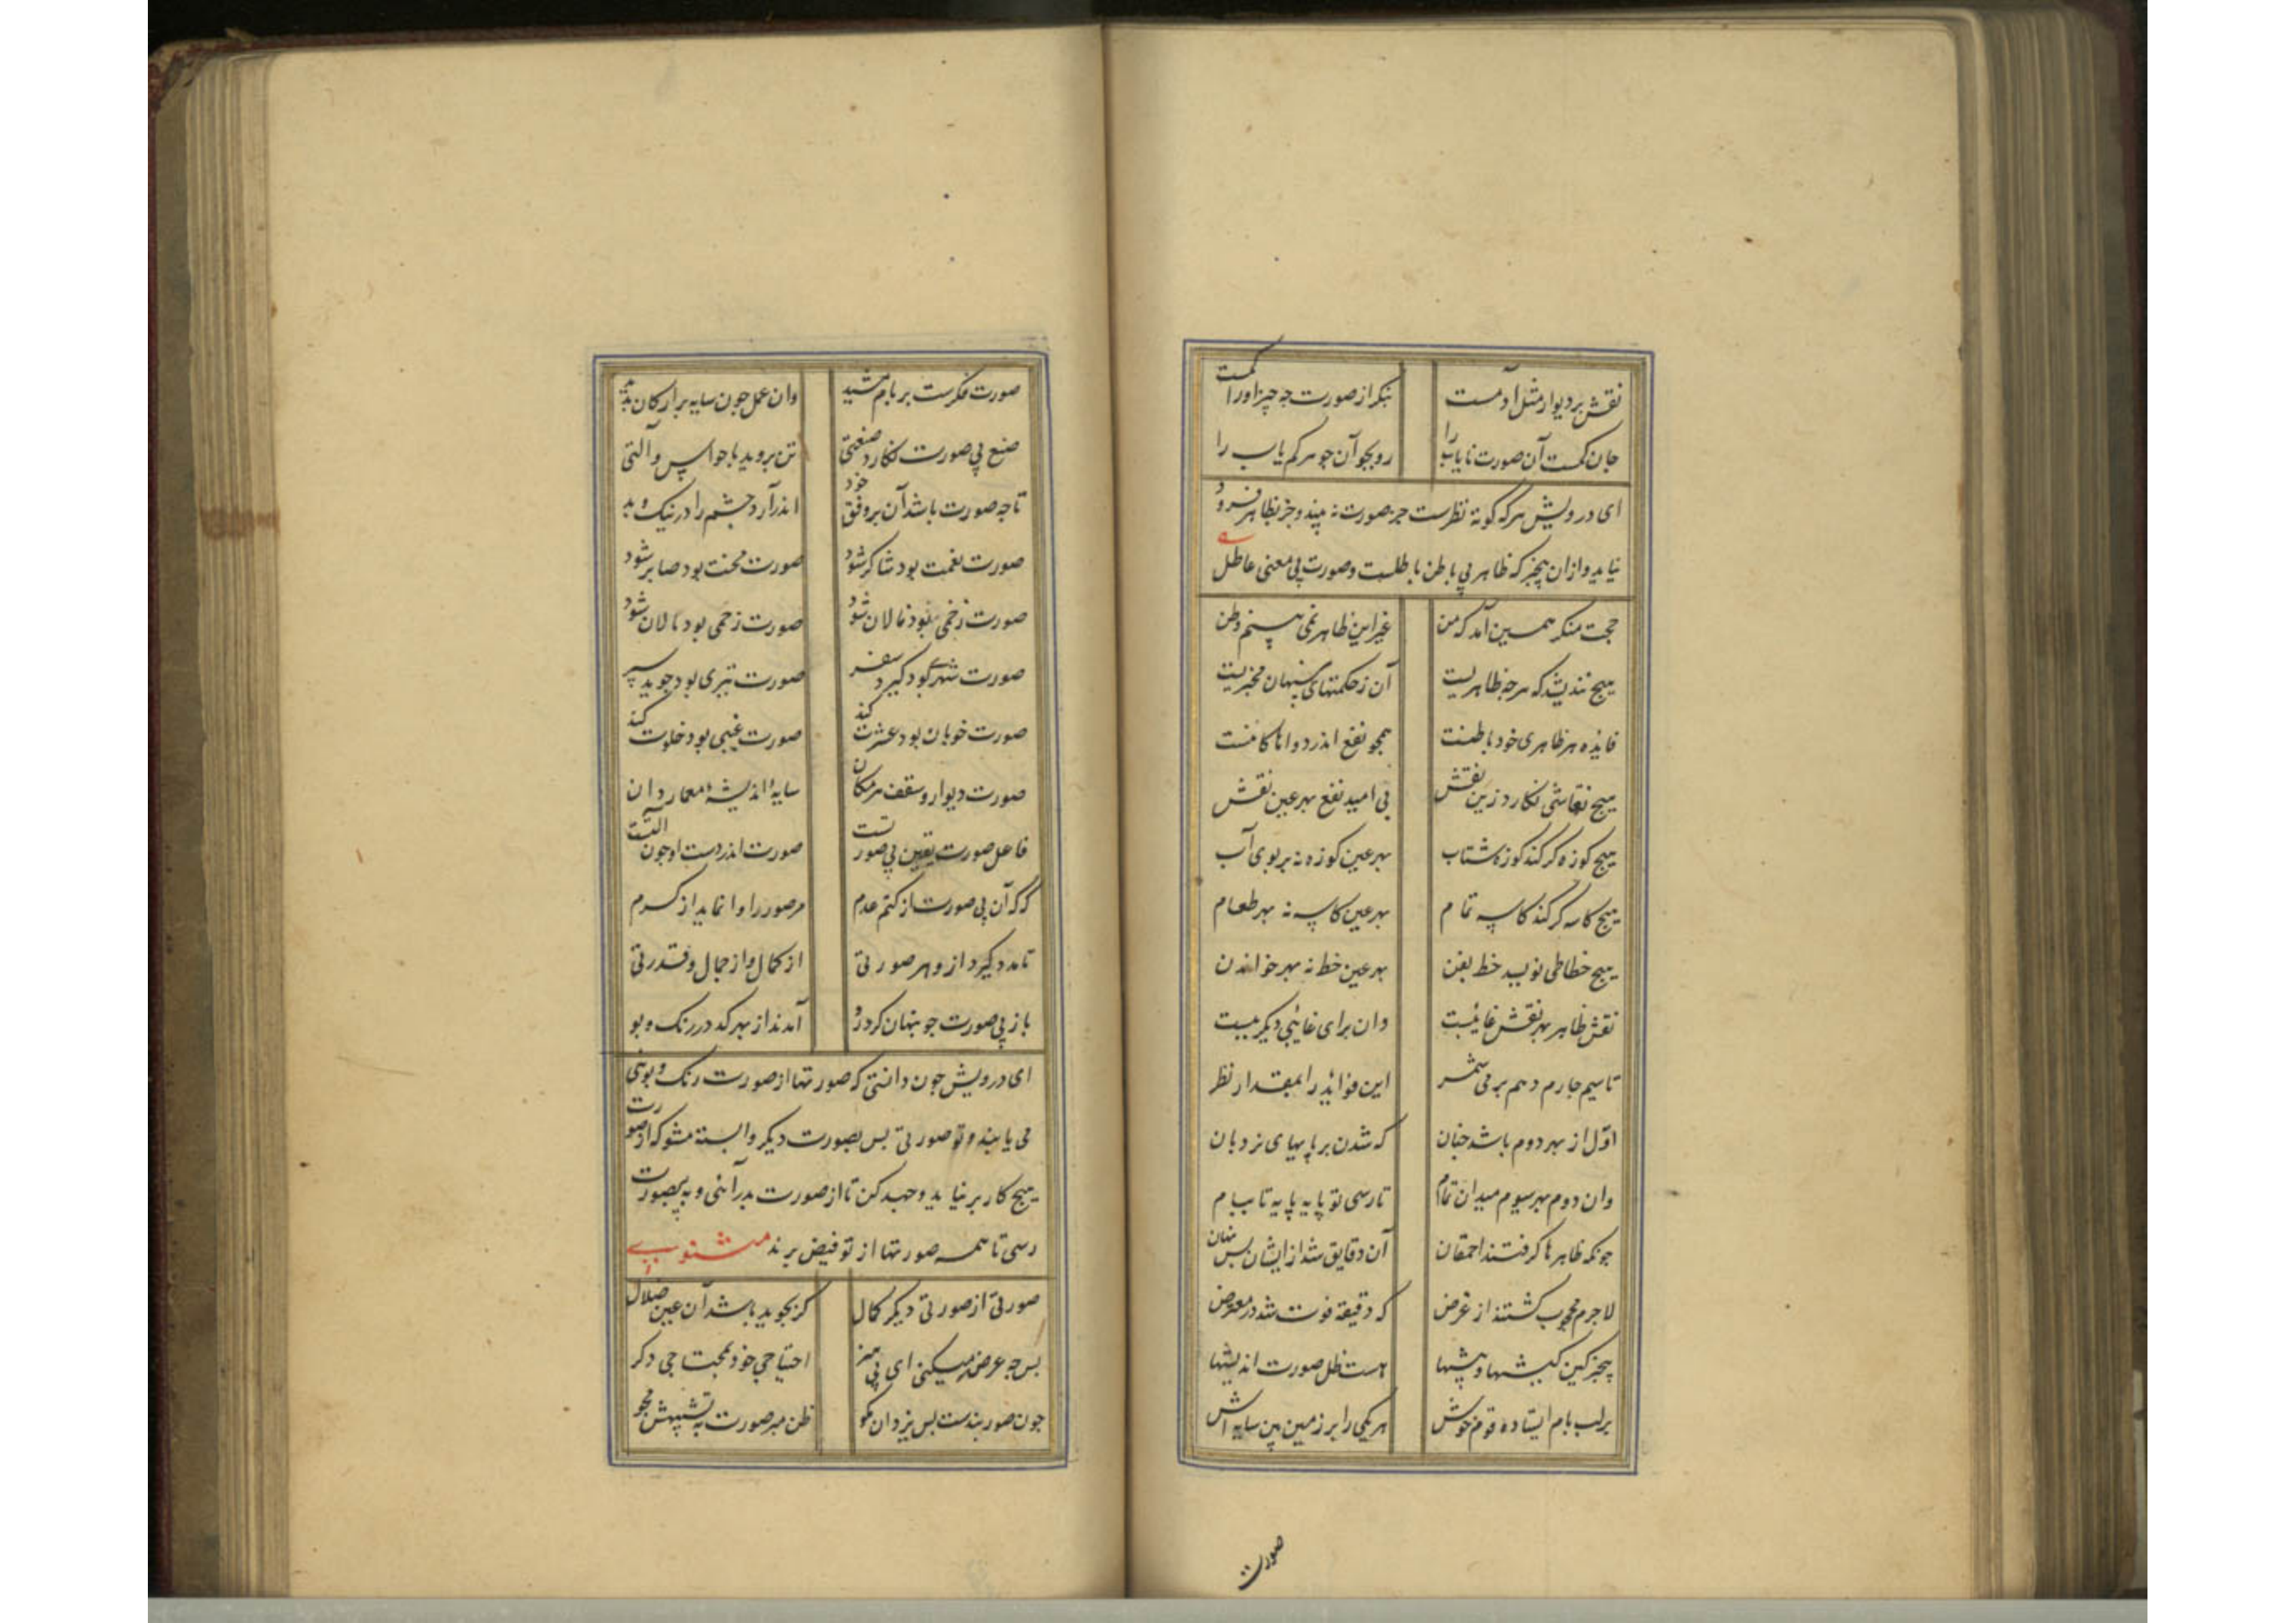 نقش بر دیوار مثل آدمست بنکر از صورت چه چیز او را کمست
جان کمست آن صورت نایاب را رو بجو آن جوهر کم یاب را
ای درویش هر که کوته نظرست جز صورت نه بیند و جز بظاهر فرو
نیاید و ازان بیخبر که ظاهر بی باطن باطلست و صورت بی معنی عاطل
حجت منکر همین آمد که من غیر این ظاهر نمی بینم وطن
هیچ نندیشد که هر جه ظاهریست آن ز حکمتهای پنهان مخبریست
فایده هر ظاهری خود باطنست همجو نفع اندر دواها کامنست
هیچ نقاشی نکارد زین نقش بی امید نفع بهر عین نقش
هیچ کوزه کر کند کوزه شتاب بهر عین کوزه نه بر بوی آب
هیچ کاسه کر کند کاسه تمام بهر عین کاسه نه بهر طعام
هیچ خطاطی نویسد خط بفن بهر عین خط نه بهر خواندن
نقش ظاهر بهر نقش غائبست وان برای غائبی دیکر ببست
تا سیم جارم دهم بر می شمر این فواید را بمقدار نظر
اول از بهر دوم باشد جنان که شدن بر پایهای نردبان
وان دوم بهر سیوم میدان تمام تا رسی تو پایه پایه تا ببام
جونکه ظاهرها کرفتند احمقان آن دقایق شد ازیشان بس نهان
لاجرم محجوب کشتند از غرض که دقیقه فوت شد در معترض
بیخبر کین کیشها و پیشها هست ظل صورت اندیشها
بر لب بام ایستاده قوم خوش هر یکی را بر زمین بین سایه اش
صورت
صورت فکرست بر بام مشید وان عمل جون سایه بر ارکان پدید
صنع بی صورت نکارد صنعتی تن بروید با حواس و آلتی
تا جه صورت باشد آن بر وفق خود اندر آرد جشم را در نیک و بد
صورت نعمت بود شاکر شود صورت محنت بود صابر شود
صورت زخمی بود نالان شود صورت رحمی بود بالان شود
صورت شهری بود کیرد سفر صورت تیری بود جوید سپر
صورت خوبان بود عشرت کند صورت غیبی بود خلوت کند
صورت دیوار و سقف هر مکان سایۀ اندیشۀ معمار دان
فاعل صورت یقین بی صورتست صورت اندر دست او جون آلتست
که که آن بی صورت از کتم عدم مر صور را وا نماید از کرم
تا مدد کیرد ازو هر صورتی از کمال و از جمال و قدرتی
باز بی صورت جو پنهان کرد رو آمدند از بهر کد در رنک و بو
ای درویش جون دانستی که صورتها از صورت رنک و بوئی
می یابند و تو صورتی بس بصورت دیکر وابسته مشو که از صورت
هیچ کار بر نیاید و جهد کن تا از صورت بدر آئی و به بیصورت
رسی تا همه صورتها از تو فیض برند مثنوی
صورتی از صورتی دیکر کمال کر بجوید باشد آن عین ضلال
بس جه عرضه میکنی ای بی هنر احتیاجی خود بمحتاجی دکر
جون صور بندست بس یزدان مکو ظن مبر صورت به تشبیهش مجو